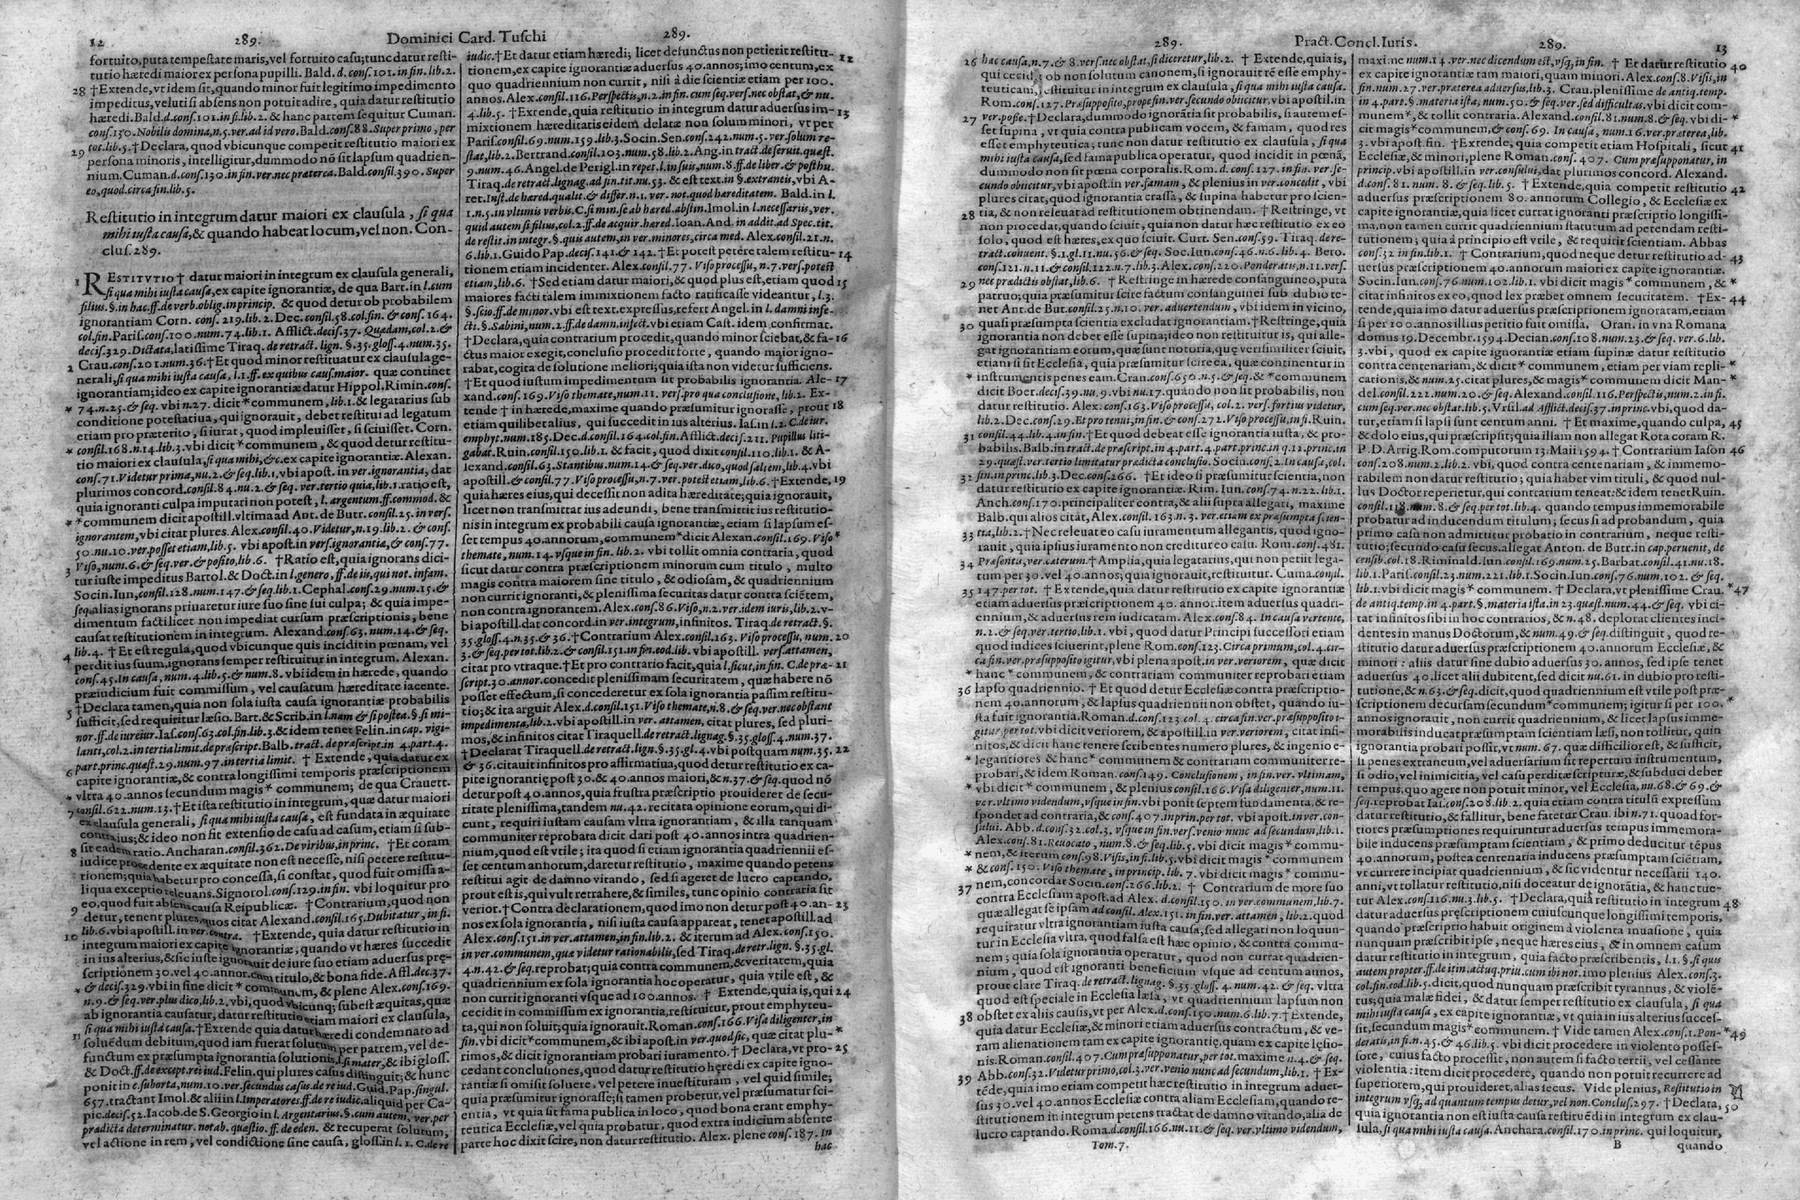 12 289. Dominici Card. Tuschi 289.
fortuito, puta tempestate maris, vel fortuito casu; tunc datur resti-
tutio hæredi maior ex persona pupilli. Bald. d. cons. 101. in fin. lib. 2.
28 †Extende, vt idem sit, quando minor fuit legitimo impedimento
impeditus, veluti si absens non potuit adire, quia datur restitutio
hæredi. Bald. d. cons. 101. in fi. lib. 2. & hanc partem sequitur Cuman.
cons. 130. Nobilis domina, n. 5. ver. ad id vero. Bald. cons. 88. Super primo, per
tot. lib. 5. †Declara, quod vbicunque competit restitutio maiori ex
29 persona minoris, intelligitur, dummodo nō sit lapsum quadrien-
nium. Cuman. d. cons. 130. in fin. ver. nec præterea. Bald. consil. 390. Super
eo, quod. circa fin. lib. 5.
Restitutio in integrum datur maiori ex clausula, si qua
mihi iusta causa, & quando habeat locum, vel non. Con-
clus. 289.
1 RESTITVTIO † datur maiori in integrum ex clausula generali,
si qua mihi iusta causa, ex capite ignorantiæ, de qua Bart. in l. cum
filius. §. in hac. ff. de verb. oblig. in princip. & quod detur ob probabilem
ignorantiam Corn. cons. 219. lib. 2. Dec. consil. 58. col. fin. & cons. 164.
col. fin. Paris. cons. 100. num. 74. lib. 1. Afflict. decis. 37. Quadam, col. 2. &
decis. 329. Dictata, latissime Tiraq. de retract. lign. §. 35. gloss. 4. num. 35.
2 Crau. cons. 201. num. 36. †Et quod minor restituatur ex clausula ge-
nerali, si qua mihi iusta causa, l. 1. ff. ex quibus caus. maior. quæ continet
ignorantiam; ideo ex capite ignorantiæ datur Hippol. Rimin. cons.
* 74. n. 25. & seq. vbi n. 27. dicit * communem, lib. 1. & legatarius sub
conditione potestatiua, qui ignorauit, debet restitui ad legatum
etiam pro præterito, si iurat, quod impleuisset, si sciuisset. Corn.
* consil. 168. n. 14. lib. 3. vbi dicit * communem, & quod detur restitu-
tio maiori ex clausula, si qua mihi, &c. ex capite ignorantiæ. Alexan.
cons. 71. Videtur prima, nu. 2. & seq. lib. 1. vbi apost. in ver. ignorantia, dat
plurimos concord. consil. 84. nu. 2. & seq. ver. tertio quia, lib. 1. ratio est,
quia ignoranti culpa imputari non potest, l. argentum. ff. commod. &
* * communem dicit apostill. vltima ad Ant. de Butr. consil. 25. in vers.
ignorantem, vbi citat plures. Alex. consil. 40. Videtur, n. 19. lib. 2. & cons.
50. nu. 10. ver. posset etiam, lib. 5. vbi apost. in vers. ignorantia, & cons. 77.
Viso, num. 6. & seq. ver. & posito, lib. 6. †Ratio est, quia ignorans dici-
3 tur iuste impeditus Bartol. & Doct. in l. genero, ff. de iis, qui not. infam.
Socin. Iun, consil. 128. num. 147. & seq. lib. 1. Cephal. cons. 29. num. 15. &
seq. alias ignorans priuaretur iure suo sine sui culpa; & quia impe-
dimentum facti licet non impediat cursum præscriptionis, bene
causat restitutionem in integrum. Alexand. cons. 63. num. 14. & seq.
4 lib. 4. † Et est regula, quod vbicunque quis incidit in pœnam, vel
perdit ius suum, ignorans semper restituitur in integrum. Alexan.
cons. 45. In causa, num. 4. lib. 5. & num. 8. vbi idem in hærede, quando
præiudicium fuit commissum, vel causatum hæreditate iacente.
5 †Declara tamen, quia non sola iusta causa ignorantiæ probabilis
sufficit, sed requiritur læsio. Bart. & Scrib. in l. nam & si postea. §. si mi-
nor. ff. de iureiur. Ias. cons. 63. col. fin. lib. 3. & idem tenet Felin. in cap. vigi-
lanti, col. 2. in tertia limit. de præscript. Balb. tract. de præscript. in 4. part. 4.
part. princ. quæst. 2. num. 97. in tertia limit. † Extende, quia datur ex
6 capite ignorantiæ, & contra longissimi temporis præscriptionem
* vltra 40. annos secundum magis * communem; de qua Crauett.
7 consil. 622. num. 13. †Et ista restitutio in integrum, quæ datur maiori
ex clausula generali, si qua mihi iusta causa, est fundata in æquitate
contrarius; & ideo non fit extensio de casu ad casum, etiam si sub-
sit eadem ratio. Ancharan. consil. 362. De viribus, in princ. †Et coram
8 iudice procedente ex æquitate non est necesse, nisi petere restitu-
tionem; quia habetur pro concessa, si constat, quod fuit omissa a-
liqua exceptio releuans. Signorol. cons. 129. in fin. vbi loquitur pro
eo, quod fuit absens causa Reipublicæ. †Contrarium, quod non
9 detur, tenent plures, quos citat Alexand. consil. 165. Dubitatur, in fi.
lib. 6. vbi apostill. in ver. contra. †Extende, quia datur restitutio in
10 integrum maiori ex capite ignorantiæ; quando vt hæres succedit
in ius alterius, & sic iuste ignorauit de iure suo etiam aduersus præ-
scriptionem 30. vel 40. annor. cum titulo, & bona fide. Affl. dec. 37.
* & decis. 329. vbi in fine dicit * communem, & plene Alex. cons. 169.
n. 9. & seq. ver. plus dico, lib. 2. vbi, quod vbicunq; subest æquitas, quæ
ab ignorantia causatur, datur restitutio etiam maiori ex clausula,
si qua mihi iusta causa. †Extende quia datur hæredi condemnado ad
11 soluēdum debitum, quod iam fuerat solutum per patrem, vel de-
functum ex præsumpta ignorantia solutionis, l. si mater, & ibi gloss.
& Doct. ff. de except. rei iud. Felin. qui plures casus distinguit; & hunc
ponit in c. suborta, num. 10. ver. secundus casus. de re iud. Guid. Pap. singul.
657. tractant Imol. & alii in l. Imperatores. ff. de re iudic. aliquid per Ca-
pic. decis. 52. Iacob. de S. Georgio in l. Argentarius. §. cum autem. ver. per
prædicta determinatur. notab. quæstio. ff. de eden. & recuperat solutum,
vel actione in rem, vel condictione sine causa, gloss. in l. 1. C. de re
iudic. †Et datur etiam hæredi; licet defunctus non petierit restitu- 12
tionem, ex capite ignorantiæ aduersus 40. annos; imo centum, ex
quo quadriennium non currit, nisi à die scientiæ etiam per 100.
annos. Alex. consil. 116. Perspectis, n. 2. in fin. cum seq. vers. nec obstat, & nu.
4. lib. 5. †Extende, quia restitutio in integrum datur aduersus im- 13
mixtionem hæreditatis eidem delatæ non solum minori, vt per
Paris. consil. 69. num. 159. lib. 3. Socin. Sen. cons. 242. num. 5. ver. solum re-
stat, lib. 2. Bertrand. consil. 103. num. 58. lib. 2. Ang. in tract. de seruit. quæst.
9. num. 46. Angel. de Perigl. in repet. l. in suis, num. 8. ff. de liber. & posthu.
Tiraq. de retract. lignag. ad fin. tit. nu. 53. & est text. in §. extraneis, vbi A-
ret. Inst. de hæred. qualit. & differ. n. 1. ver. not. quod hæreditatem. Bald. in l.
1. n. 5. in vltimis verbis. C. si min. se ab hæred. abstin. Imol. in l. necessariis, ver.
quid autem si filius, col. 2. ff. de acquir. hæred. Ioan. And. in addit. ad Spec. tit.
de restit. in integr. §. quis autem, in ver. minores, circa med. Alex. consil. 21. n.
6. lib. 1. Guido Pap. decis. 141. & 142. †Et potest petere talem restitu- 14
tionem etiam incidenter. Alex. consil. 77. Viso processu, n. 7. vers. potest
etiam, lib. 6. †Sed etiam datur maiori, & quod plus est, etiam quod 15
maiores facti talem immixtionem facto ratificasse videantur, l. 3.
§. scio. ff. de minor. vbi est text. expressus, refert Angel. in l. damni infe-
cti. §. Sabini, num. 2. ff. de damn. infect. vbi etiam Cast. idem confirmat.
†Declara, quia contrarium procedit, quando minor sciebat, & fa- 16
ctus maior exegit, conclusio procedit forte, quando maior igno-
rabat, cogita de solutione meliori; quia ista non videtur sufficiens.
†Et quod iustum impedimentum sit probabilis ignorantia. Ale- 17
xand. cons. 169. Viso themate, num. 11. vers. pro qua conclusione, lib. 2. Ex-
tende † in hærede, maxime quando præsumitur ignorasse, prout 18
etiam quilibet alius, qui succedit in ius alterius. Ias. in l. 2. C. de iur.
emphyt. num. 185. Dec. d. consil. 164. col. fin. Afflict. decis. 211. Pupillus liti-
gabat. Ruin. consil. 150. lib. 1. & facit, quod dixit consil. 110. lib. 1. & A-
lexand. consil. 63. Stantibus num. 14. & seq. ver. duo, quod saltem, lib. 4. vbi
apostill. & consil. 77. Viso processu, n. 7. ver. potest etiam, lib. 6. †Extende, 19
quia hæres eius, qui decessit non adita hæreditate; quia ignorauit,
licet non transmittat ius adeundi, bene transmittit ius restitutio-
nis in integrum ex probabili causa ignorantiæ, etiam si lapsum es-
set tempus 40. annorum, communem * dicit Alexan. consil. 169. Viso *
themate, num. 14. vsque in fin. lib. 2. vbi tollit omnia contraria, quod
sicut datur contra præscriptionem minorum cum titulo, multo
magis contra maiorem sine titulo, & odiosam, & quadriennium
non currit ignoranti, & plenissima securitas datur contra sciētem,
non contra ignorantem. Alex. cons. 86. Viso, n. 2. ver. idem iuris, lib. 2. v-
bi apostill. dat concord. in ver. integrum, infinitos. Tiraq. de retract. §.
35. gloss. 4. n. 35. & 36. †Contrarium Alex. consil. 163. Viso processu, num. 20
3. & seq. per tot. lib. 2. & consil. 151. in fin. eod. lib. vbi apostill. vers. attamen,
citat pro vtraque. †Et pro contrario facit, quia l. sicut, in fin. C. de præ- 21
script. 30. annor. concedit plenissimam securitatem, quæ habere nō
posset effectum, si concederetur ex sola ignorantia passim restitu-
tio; & ita arguit Alex. d. consil. 151. Viso themate, n. 8. & seq. ver. nec obstant
impedimenta, lib. 2. vbi apostill. in ver. attamen, citat plures, sed pluri-
mos, & infinitos citat Tiraquell. de retract. lignag. §. 35. gloss. 4. num. 37.
†Declarat Tiraquell. de retract. lign. §. 35. gl. 4. vbi postquam num. 35. 22
& 36. citauit infinitos pro affirmatiua, quod detur restitutio ex ca-
pite ignorantiæ post 30. & 40. annos maiori, & n. 37. & seq. quod nō
detur post 40. annos, quia frustra præscriptio prouideret de secu-
ritate plenissima, tandem nu. 42. recitata opinione eorum, qui di-
cunt, requiri iustam causam vltra ignorantiam, & illa tanquam
communiter reprobata dicit dari post 40. annos intra quadrien-
nium, quod est vtile; ita quod si etiam ignorantia quadriennii es-
set centum annorum, daretur restitutio, maxime quando petens
restitui agit de damno vitando, sed si ageret de lucro captando,
prout est is, qui vult retrahere, & similes, tunc opinio contraria sit
verior. †Contra declarationem, quod imo non detur post 40. an- 23
nos ex sola ignorantia, nisi iusta causa appareat, tenet apostill. ad
Alex. cons. 151. in ver. attamen, in fin. lib. 2. & iterum ad Alex. cons. 150.
in ver. communem, quæ videtur rationabilis, sed Tiraq. de retr. lign. §. 35. gl.
4. n. 42. & seq. reprobat; quia contra communem, & veritatem, quia
quadriennium ex sola ignorantia hoc operatur, quia vtile est, &
non currit ignoranti vsque ad 100. annos. † Extende, quia is, qui 24
cecidit in commissum ex ignorantia, restituitur, prout emphyteu-
ta, qui non soluit; quia ignorauit. Roman. cons. 166. Visa diligenter, in
fin. vbi dicit * communem, & ibi apost. in ver. quod sic, quæ citat plu- *
rimos, & dicit ignorantiam probari iuramento. † Declara, vt pro- 25
cedant conclusiones, quod datur restitutio hæredi ex capite igno-
rantiæ si omisit soluere, vel petere inuestituram, vel quid simile;
quia præsumitur ignorasse; si tamen probetur, vel præsumatur sci-
entia, vt quia sit fama publica in loco, quod bona erant emphy-
teutica Ecclesiæ, vel quia probatur, quod extra iudicium absente
parte hoc dixit scire, non datur restitutio. Alex. plene cons. 187. in
hac
289. Pract. Concl. Iuris. 289. 13
26 hac causa, n. 7. & 8. ver. nec obstat, si diceretur, lib. 2. † Extende, quia is,
qui cecidit ob non solutum canonem, si ignorauit rē esse emphy-
teuticam, restituitur in integrum ex clausula, si qua mihi iusta causa.
Rom. cons. 127. Præsupposito, prope fin. ver. secundo obiicitur, vbi apostil. in
27 ver. posse. †Declara, dummodo ignorātia sit probabilis, si autem es-
set supina, vt quia contra publicam vocem, & famam, quod res
esset emphyteutica; tunc non datur restitutio ex clausula, si qua
mihi iusta causa, sed fama publica operatur, quod incidit in pœnā,
dummodo non sit pœna corporalis. Rom. d. cons. 127. in fin. ver. se-
cundo obiicitur, vbi apost. in ver. famam, & plenius in ver. concedit, vbi
plures citat, quod ignorantia crassa, & supina habetur pro scien-
28 tia, & non releuat ad restitutionem obtinendam. †Restringe, vt
non procedat, quando sciuit, quia non datur hoc restitutio ex eo
solo, quod est hæres, ex quo sciuit. Curt. Sen. cons. 59. Tiraq. de re-
tract. conuent. §. 1. gl. 11. nu. 56. & seq. Soc. Iun. cons. 46. n. 6. lib. 4. Bero.
cons. 121. n. 11. & consil. 122. n. 7. lib. 3. Alex. cons. 220. Ponderatis, n. 11. vers.
29 nec prædictis obstat, lib. 6. †Restringe in hærede consanguineo, puta
patruo; quia præsumitur scire factum consanguinei sub dubio te-
net Ant. de But. consil. 25. n. 10. ver. aduertendum, vbi idem in vicino,
30 quasi præsumpta scientia excludat ignorantiam. †Restringe, quia
ignorantia non debet esse supina; ideo non restituitur is, qui alle-
gat ignorantiam eorum, quæ sunt notoria, quæ verisimiliter sciuit,
etiam si sit Ecclesia, quia præsumitur scire ea, quæ continentur in
* instrumentis penes eam. Cran. cons. 650. n. 5. & seq. & * communem
dicit Boer. decis. 39. nu. 9. vbi nu. 17. quando non sit probabilis, non
datur restitutio. Alex. cons. 163. Viso processu, col. 2. vers. fortius videtur,
lib. 2. Dec. cons. 29. Et pro tenui, in fin. & cons. 272. Viso processu, in fi. Ruin.
31 consil. 44. lib. 4. in fin. †Et quod debeat esse ignorantia iusta, & pro-
babilis. Balb. in tract. de præscript. in 4. part. 4. part. princ. in q. 12. princ. in
29. quæst. ver. tertio limitatur prædicta conclusio. Socin. cons. 2. In causa, col.
32 fin. in princ. lib. 3. Dec. cons. 266. †Et ideo si præsumitur scientia, non
datur restitutio ex capite ignorantiæ. Rim. Iun. cons. 74. n. 22. lib. 1.
Anch. 170. principaliter contra, & alii supra allegati, maxime
Balb. qui alios citat, Alex. cons. 163. n. 3. ver. etiam ex præsumpta scien-
33 tia, lib. 2. †Nec releuat eo casu iuramentum allegantis, quod igno-
rauit, quia ipsius iuramento non creditur eo casu. Rom. cons. 481.
34 Præsentia, ver. caterum. †Amplia, quia legatarius, qui non petiit lega-
tum per 30. vel 40. annos; quia ignorauit, restituitur. Cuma. consil.
35 147. per tot. †Extende, quia datur restitutio ex capite ignorantiæ
etiam aduersus præscriptionem 40. annor. item aduersus quadri-
ennium, & aduersus rem iudicatam. Alex. cons. 84. In causa vertente,
n. 2. & seq. ver. tertio, lib. 1. vbi, quod datur Principi successori etiam
quod iudices sciuerint, plene Rom. cons. 123. Circa primum, col. 4. cir-
ca fin. ver. præsupposito igitur, vbi plena apost. in ver. veriorem, quæ dicit
* hanc * communem, & contrariam communiter reprobari etiam
36 lapso quadriennio. † Et quod detur Ecclesiæ contra præscriptio-
nem 40. annorum, & lapsus quadriennii non obstet, quando iu-
sta fuit ignorantia. Roman. d. cons. 123. col. 4. circa fin. ver. præsupposito i-
gitur, per tot. vbi dicit veriorem, & apostill. in ver. veriorem, citat infi-
nitos, & dicit hanc tenere scribentes numero plures, & ingenio e-
* legantiores & hanc * communem & contrariam communiter re-
probari, & idem Roman. cons. 149. Conclusionem, in fin. ver. vltimam,
* vbi dicit * communem, & plenius consil. 166. Visa diligenter, num. 11.
ver. vltimo videndum, vsque in fin. vbi ponit septem fundamenta, & re-
spondet ad contraria, & cons. 407. in prin. per tot. vbi apost. in ver. con-
sului. Abb. d. cons. 32. col. 3. vsque in fin. ver. venio nunc ad secundum, lib. 1.
Alex. cons. 81. Reuocato, num. 8. & seq. lib. 5. vbi dicit magis * commu-
* nem, & iterum cons. 98. Visis, in fi. lib. 5. vbi dicit magis * communem
* & cons. 150. Viso themate, in princip. lib. 7. vbi dicit magis * commu-
37 nem, concordat Socin. cons. 266. lib. 2. † Contrarium de more suo
contra Ecclesiam apost. ad Alex. d. cons. 150. in ver. communem, lib. 7.
quæ allegat se ipsam ad consil. Alex. 151. in fin. ver. attamen, lib. 2. quod
requiratur vltra ignorantiam iusta causa, sed allegati non loquun-
tur in Ecclesia vltra, quod falsa est hæc opinio, & contra commu-
nem; quia sola ignorantia operatur, quod non currat quadrien-
nium, quod est ignoranti beneficium vsque ad centum annos,
prout clare Tiraq. de retract. lignag. §. 35. gloss. 4. num. 42. & seq. vltra
quod est speciale in Ecclesia læsa, vt quadriennium lapsum non
38 obstet ex aliis causis, vt per Alex. d. cons. 150. num. 6. lib. 7. †Extende,
quia datur Ecclesiæ, & minori etiam aduersus contractum, & ve-
ram alienationem tam ex capite ignorantiæ, quam ex capite læsio-
nis. Roman. consil. 407. Cum præsupponatur, per tot. maxime n. 4. & seq.
39 Abb. cons. 32. Videtur primo, col. 3. ver. venio nunc ad secundum, lib. 1. †Ex-
tēde, quia imo etiam competit hæc restitutio in integrum aduer-
sus 30. vel 40. annos Ecclesiæ contra aliam Ecclesiam, quando re-
stitutionem in integrum petens tractat de damno vitando, alia de
lucro captando. Roma. d. consil. 166. nu. 11. & seq. ver. vltimo videndum,
Tom. 7.
maxime num. 14. ver. nec dicendum est, vsq, in fin. † Et datur restitutio 40
ex capite ignorantiæ tam maiori, quam minori. Alex. cons. 8. Visis, in
fin. num. 27. ver. præterea aduersus, lib. 3. Crau. plenissime de antiq. temp.
in 4. part. §. materia ista, num. 50. & seq. ver. sed difficultas. vbi dicit com-
munem *, & tollit contraria. Alexand. consil. 81. num. 8. & seq. lib. 5. vbi di- *
cit magis * communem, & cons. 69. In causa, num. 16. ver. præterea, lib. *
3. vbi apost. fin. †Extende, quia competit etiam Hospitali, sicut 41
Ecclesiæ, & minori, plene Roman. cons. 407. Cum præsupponatur, in
princip. vbi apostill. in ver. consului, dat plurimos concord. Alexand.
d. cons. 81. num. 8. & seq. lib. 5. † Extende, quia competit restitutio 42
aduersus præscriptionem 80. annorum Collegio, & Ecclesiæ ex
capite ignorantiæ, quia licet currat ignoranti præscriptio longissi-
ma, non tamen currit quadriennium statutum ad petendam resti-
tutionem; quia à principio est vtile, & requirit scientiam. Abbas
cons. 32 in fin. lib. 1. † Contrarium, quod neque detur restitutio ad- 43
uersus præscriptionem 40. annorum maiori ex capite ignorantiæ.
Socin. Iun. cons. 76. num. 102. lib. 1. vbi dicit magis * communem, & *
citat infinitos ex eo, quod lex præbet omnem securitatem. †Ex- 44
tende, quia imo datur aduersus præscriptionem ignoratam, etiam
si per 100. annos illius petitio fuit omissa. Oran. in vna Romana
domus 19. Decembr. 1594. Decian. cons. 108. num. 23. & seq. ver. 6. lib.
3. vbi, quod ex capite ignorantiæ etiam supinæ datur restitutio
contra centenariam, & dicit * communem, etiam per viam repli- *
cationis, & num. 25. citat plures, & magis * communem dicit Man- *
del. cons. 221. num. 20. & seq. Alexand. cons. 116. Perspectis, num. 2. in fi.
cum seq. ver. nec obstat. lib. 5. Vrsil. ad Afflict. decis. 37. in princ. vbi, quod da-
tur, etiam si lapsi sunt centum anni. † Et maxime, quando culpa, 45
& dolo eius, qui præscripsit; quia illam non allegat Rota coram R.
P. D. Arrig. Rom. computorum 13. Maii 1594. † Contrarium Iason 46
cons. 208. num. 2. lib. 2. vbi, quod contra centenariam, & immemo-
rabilem non datur restitutio; quia habet vim tituli, & quod nul-
lus Doctor reperietur, qui contrarium teneat: & idem tenet Ruin.
consil. 118. num. 8. & seq. per tot. lib. 4. quando tempus immemorabile
probatur ad inducendum titulum, secus si ad probandum, quia
primo casu non admittitur probatio in contrarium, neque resti-
tutio; secundo casu secus. allegat Anton. de Butr. in cap. peruenit, de
censib. col. 18. Riminald. Iun. consil. 169. num. 25. Barbat. consil. 41. nu. 18.
lib. 1. Paris. consil. 23. num. 221. lib. 1. Socin. Iun. cons. 76. num. 102. & seq.
lib. 1. vbi dicit magis * communem. † Declara, vt plenissime Crau. *47
de antiq. temp. in 4. part. §. materia ista. in 23. quæst. num. 44. & seq. vbi ci-
tat infinitos sibi in hoc contrarios, & n. 48. deplorat clientes inci-
dentes in manus Doctorum, & num. 49. & seq. distinguit, quod re-
stitutio datur aduersus præscriptionem 40. annorum Ecclesiæ, &
minori: aliis datur sine dubio aduersus 30. annos, sed ipse tenet
aduersus 40. licet alii dubitent, sed dicit nu. 61. in dubio pro resti-
tutione, & n. 63. & seq. dicit, quod quadriennium est vtile post præ-
scriptionem decursam secundum * communem; igitur si per 100. *
annos ignorauit, non currit quadriennium, & licet lapsus imme-
morabilis inducat præsumptam scientiam læsi, non tollitur, quin
ignorantia probari possit, vt num. 67. quæ difficilior est, & sufficit,
si penes extraneum, vel aduersarium sit repertum instrumentum,
si odio, vel inimicitia, vel casu perdita scripturæ, & subduci debet
tempus, quo agere non potuit minor, vel Ecclesia, nu. 68. & 69. &
seq. reprobat Ias. cons. 208. lib. 2. quia etiam contra tituli expressum
datur restitutio, & fallitur, bene fatetur Crau. ibi n. 71. quoad for-
tiores præsumptiones requiruntur aduersus tempus immemora-
bile inducens præsumptam scientiam, & primo deducitur tēpus
40. annorum, postea centenaria inducens præsumptam sciētiam,
vt currere incipiat quadriennium, & sic videntur necessarii 140.
anni, vt tollatur restitutio, nisi doceatur de ignorātia, & hanc tue-
tur Alex. cons. 116. nu. 3. lib. 5. †Declara, quia restitutio in integrum 48
datur aduersus præscriptionem cuiuscunque longissimi temporis,
quando præscriptio habuit originem à violenta inuasione, quia
nunquam præscribit ipse, neque hæres eius, & in omnem casum
datur restitutio in integrum, quia facto præscribentis, l. 1. §. si quis
autem propter. ff. de itin. actuq. priu. cum ibi not. imo plenius Alex. cons. 3.
col. fin. eod. lib. 5. dicit, quod nunquam præscribit tyrannus, & violē-
tus; quia malæ fidei, & datur semper restitutio ex clausula, si qua
mihi iusta causa, ex capite ignorantiæ, vt quia in ius alterius succes-
sit, secundum magis * communem. † Vide tamen Alex. cons. 1. Pon- *49
deratis, in fi. n. 45. & 46. lib. 5. vbi dicit procedere in violento posses-
sore, cuius facto processit, non autem si facto tertii, vel cessante
violentia: item dicit procedere, quando non potuit recurrere ad
superiorem, qui prouideret, alias secus. Vide plenius, Restitutio in
integrum vsq, ad quantum tempus detur, vel non. Conclus. 297. †Declara, 50
quia ignorantia non est iusta causa restituēdi in integrum ex clau-
sula, si qua mihi iusta causa. Anchara. consil. 170. in princ. qui loquitur,
B quando